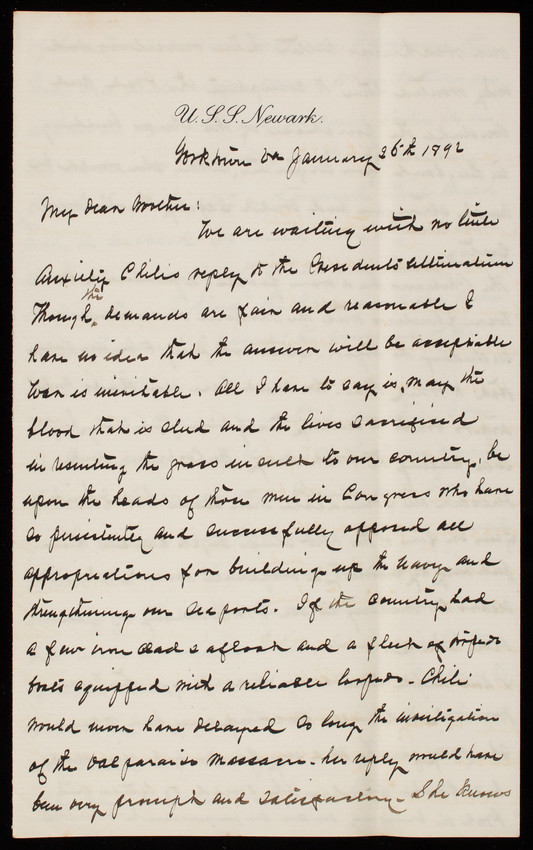 U.S.S. Newark.
Yorktown Va January 26th 1892
My dear Mother:
We are waiting with no little
Anxiety Chilis reply to the Presidents Ultimatum
Though the demands are fair and reasonable I
have no idea that the answer will be acceptable
War is inevitable. All I have to say is, may the
blood that is shed and the lives sacrificed
in resenting the gross insult to our country, be
upon the heads of those men in Congress who have
so persistently and successfully opposed all
appropriations for building up the Navy and
strengthening our sea ports. If the country had
a few iron clads afloat and a fleet of torpedo
boats equipped with a reliable torpedo - Chili
would never have delayed so long the investigation
of the Valparaiso Massacre. her reply would have
been very prompt and satisfactory - She knows